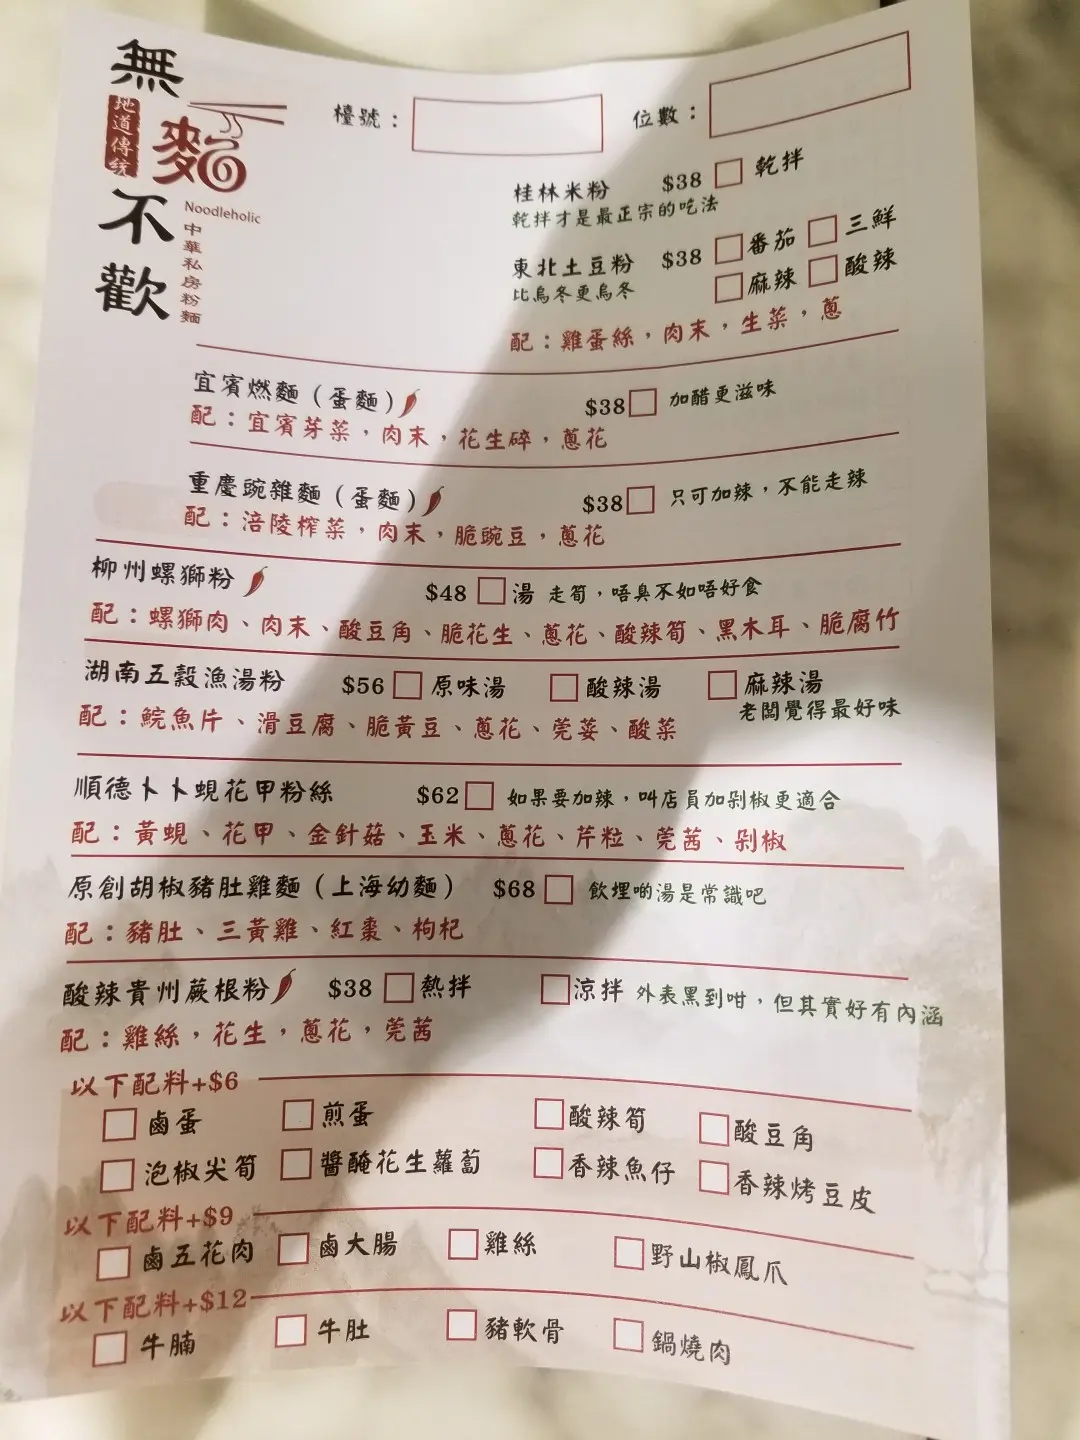 無麵不歡
地道傳統
Noodleholic
中華私房粉麵
檯號：
位數：
桂林米粉 $38 乾拌
乾拌才是最正宗的吃法
東北土豆粉 $38 番茄 三鮮
比烏冬更烏冬 麻辣 酸辣
配：雞蛋絲，肉末，生菜，蔥
宜賓燃麵（蛋麵） $38 加醋更滋味
配：宜賓芽菜，肉末，花生碎，蔥花
重慶豌雜麵（蛋麵） $38 只可加辣，不能走辣
配：涪陵榨菜，肉末，脆豌豆，蔥花
柳州螺獅粉 $48 湯 走筍，唔臭不如唔好食
配：螺獅肉、肉末、酸豆角、脆花生、蔥花、酸辣筍、黑木耳、脆腐竹
湖南五穀漁湯粉 $56 原味湯 酸辣湯 麻辣湯
老闆覺得最好味
配：鯇魚片、滑豆腐、脆黃豆、蔥花、莞荽、酸菜
順德卜卜蜆花甲粉絲 $62 如果要加辣，叫店員加剁椒更適合
配：黃蜆、花甲、金針菇、玉米、蔥花、芹粒、莞茜、剁椒
原創胡椒豬肚雞麵（上海幼麵） $68 飲埋啲湯是常識吧
配：豬肚、三黃雞、紅棗、枸杞
酸辣貴州蕨根粉 $38 熱拌 涼拌 外表黑到咁，但其實好有內涵
配：雞絲，花生，蔥花，莞茜
以下配料+$6
鹵蛋 煎蛋 酸辣筍 酸豆角
泡椒尖筍 醬醃花生蘿蔔 香辣魚仔 香辣烤豆皮
以下配料+$9
鹵五花肉 鹵大腸 雞絲 野山椒鳳爪
以下配料+$12
牛腩 牛肚 豬軟骨 鍋燒肉